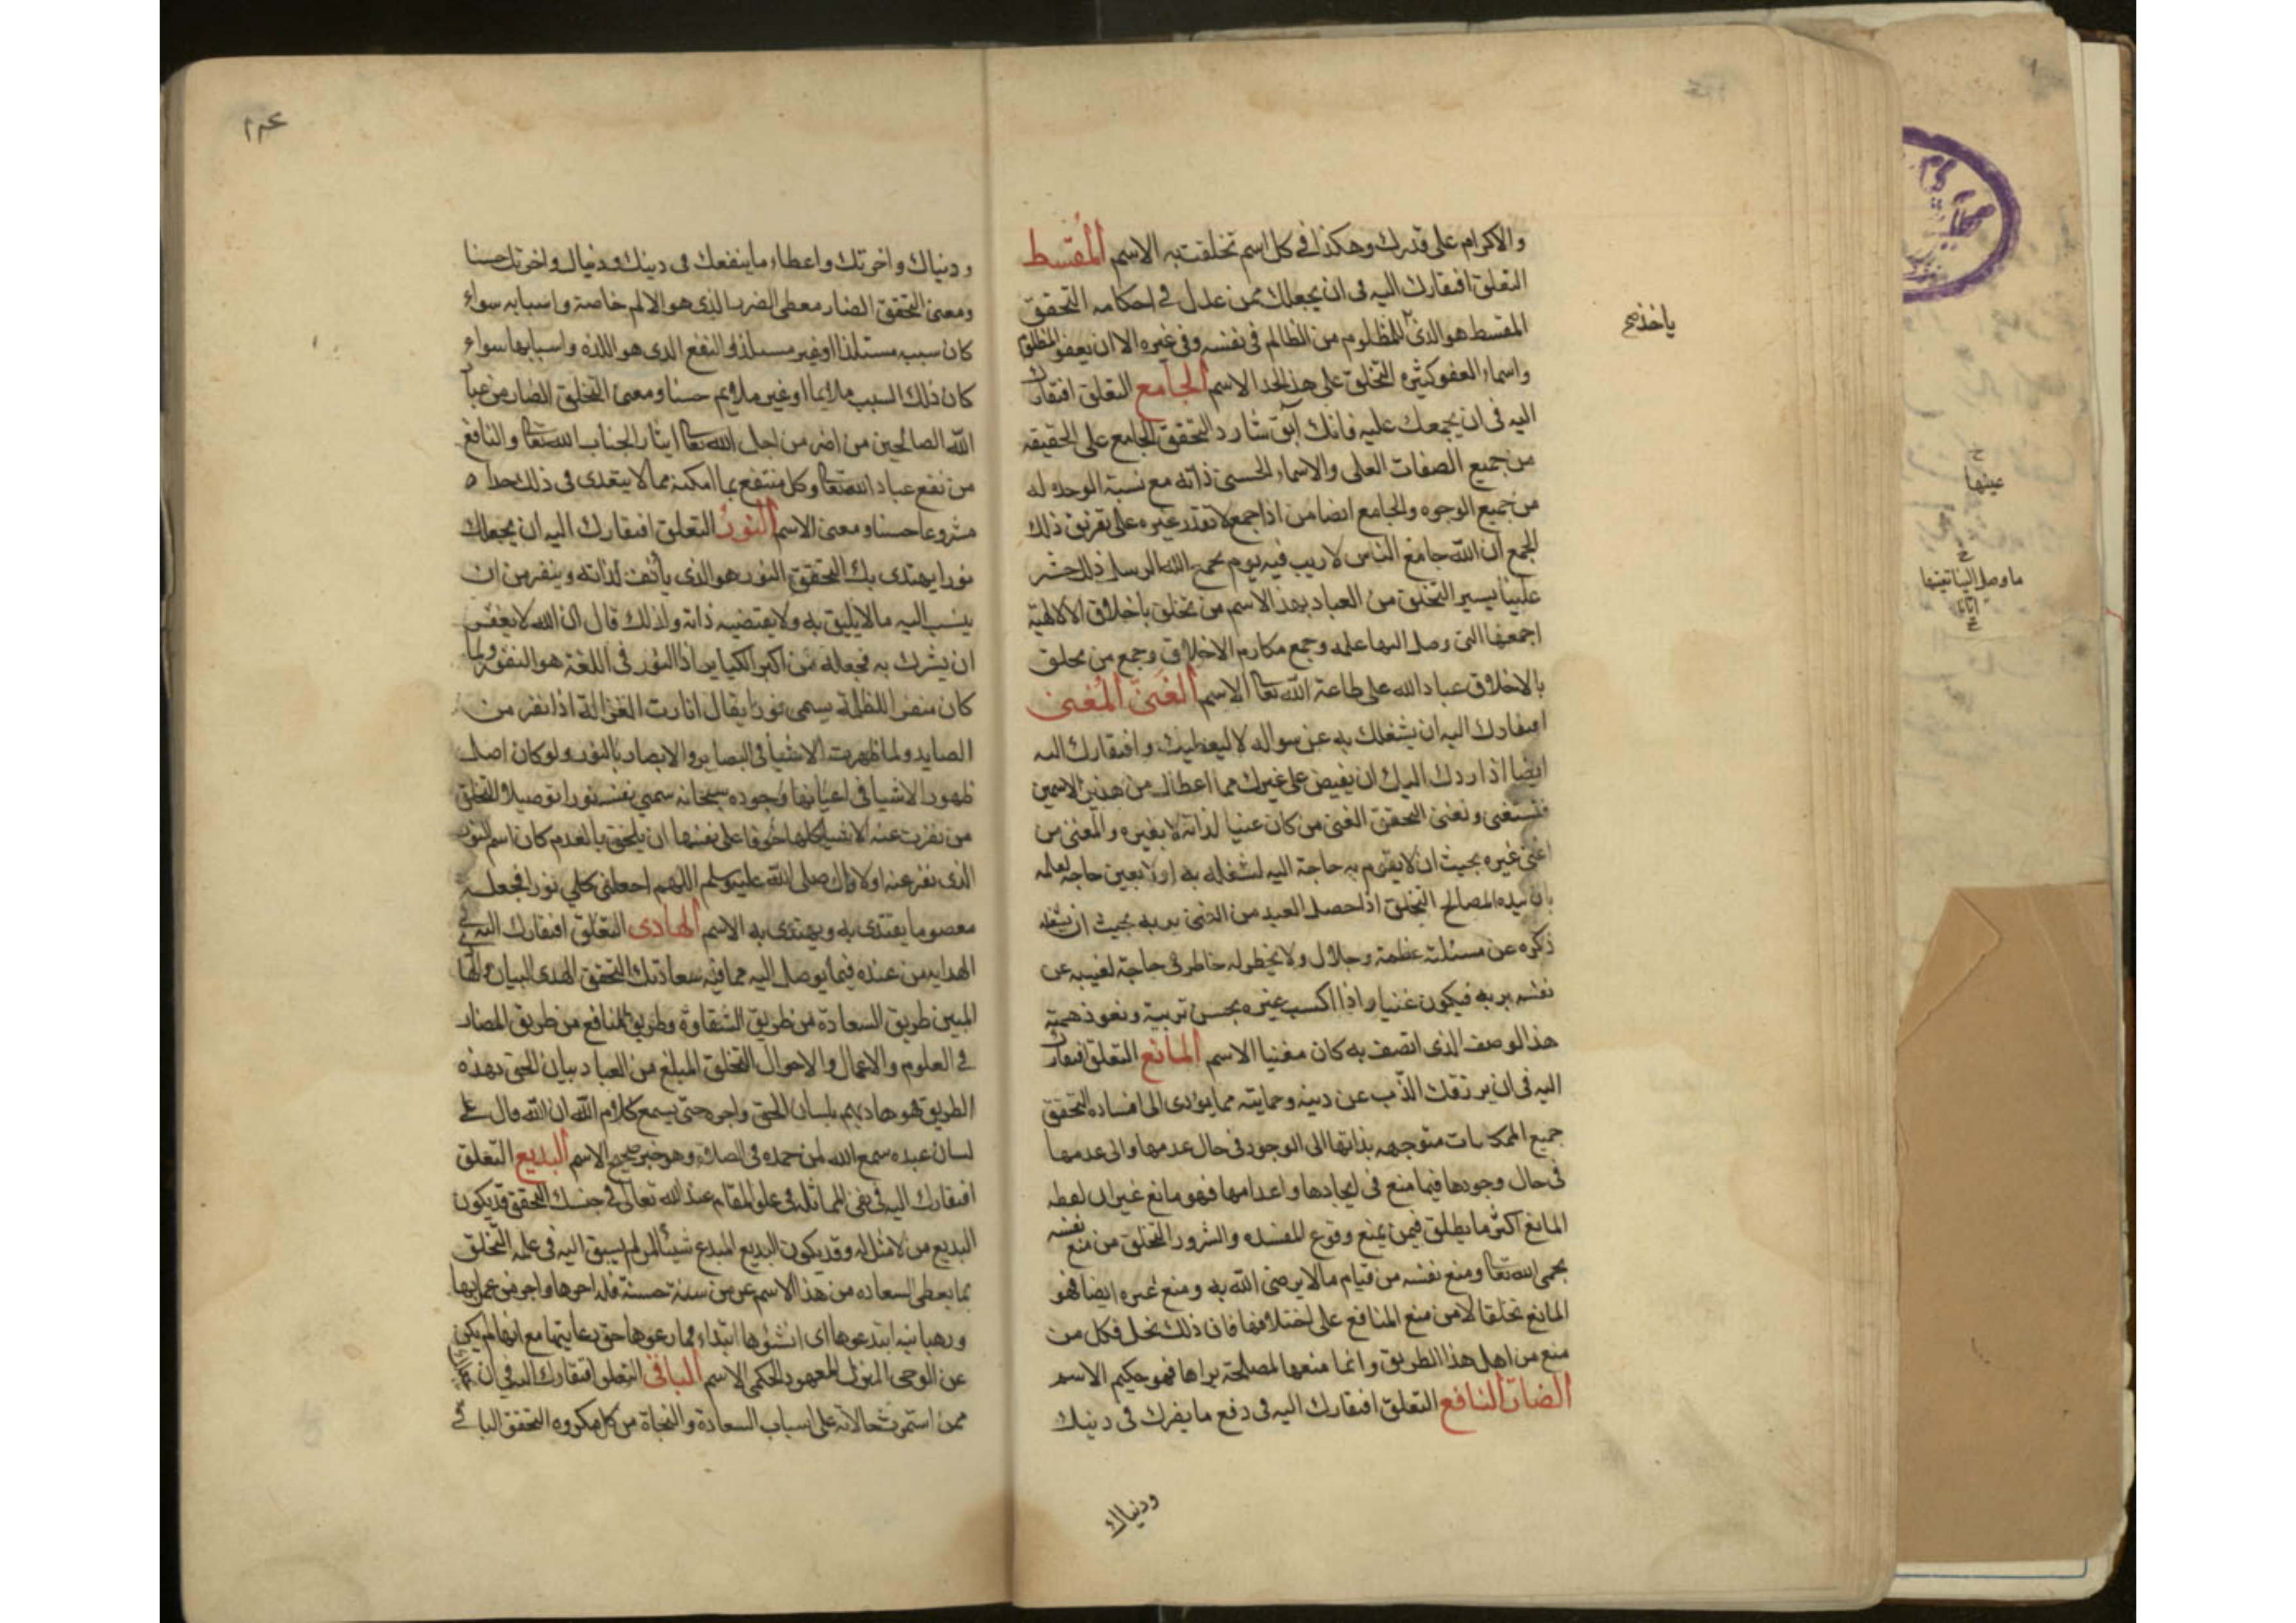 والاكرام على قدرك وهكذا في كل اسم تخلقت به الاسم المقسط
التعلق افتقارك اليه في ان يجعلك ممن عدل في احكامه التحقق
المقسط هو الذي للمظلوم من الظالم في نفسه وفي غيره الا ان يعفو المظلوم
ياخذ صح
واسماء العفو كثيره التخلق على هذا الحد الاسم الجامع التعلق افتقارك
اليه في ان يجمعك عليه فانك آبق شارد التحقق الجامع على الحقيقه
من جميع الصفات العلى والاسماء الحسنى ذاته مع نسبة الوحده له
من جميع الوجوه والجامع ايضا من اذا جمع لا يقدر غيره على تفريق ذلك
الجمع ان الله جامع الناس لا ريب فيه يوم يجمع الله الرسل ذلك حشر
علينا يسير التخلق من العباد بهذا الاسم من تخلق باخلاق الالهية
اجمعها التي وصل اليها علمه وجمع مكارم الاخلاق وجمع من تخلق
بالاخلاق عباد الله على طاعة الله تعا الاسم الغني المغني
افتقارك اليه ان يشغلك به عن سواله لا ليعطيك وافتقارك اليه
ايضا اذا ردك اليك ان يفيض على غيرك مما اعطاك من هذين الاسمين
فتستغني وتغني التحقق الغني من كان غنيا لذاته لا بغيره والمغني من
اغنى غيره بحيث ان لا يقوم به حاجة اليه لشغله به او لا بعين حاجه لعلمه
بان بيده المصالح التخلق اذا حصل العبد من الغنى بربه بحيث ان يشغله
ذكره عن مسئلته عظمة وجلال ولا يخطر له خاطر في حاجة لغيبه عن
نفسه بربه فيكون غنيا واذا اكسب غيره بحسن تربية ونفوذ همته
هذا الوصف الذي اتصف به كان مغنيا الاسم المانع التعلق افتقارك
اليه في ان يرزقك الذب عن دينه وحمايته مما يؤدى الى افساده التحقق
جميع الممكنات متوجهه بذاتها الى الوجود في حال عدمها والى عدمها
في حال وجودها فيما منع في ايجادها واعدامها فهو مانع غير ان لفظه
المانع اكثر ما يطلق فيمن يمنع وقوع المفسده والشرور التخلق من منع نفسه
بحمى الله تعا ومنع نفسه من قيام ما لا يرضى الله به ومنع غيره ايضا فهو
المانع تخلقا لا من منع المنافع على اختلافها فان ذلك بخل فكل من
منع من اهل هذا الطريق وانما منعها لمصلحة يراها فهو حكيم الاسم
الضار النافع التعلق افتقارك اليه في دفع ما يضرك في دينك
ودنياك
ودنياك واخرتك واعطاء ما ينفعك في دينك ودنياك واخرتك حسنا
ومعنى التحقق الضار معطى الضر الذي هو الالم خاصة واسبابه سواء
كان سببه مستلذا او غير مستلذ والنفع الذي هو اللذه واسبابها سواء
كان ذلك السبب ملايما او غير ملايم حسنا ومعنى التخلق الضار من عباد
الله الصالحين من اضر من اجل الله تعا ايثارا لجناب الله تعا والنافع
من نفع عباد الله تعا وكل منتفع بما امكنه مما لا يتعدى في ذلك حدا
مشروعا حسنا ومعنى الاسم النور التعلق افتقارك اليه ان يجعلك
نورا يهتدى بك التحقق النور هو الذي يأنف لذاته وينفر من ان
ينسب اليه ما لا يليق به ولا يقتضيه ذاته ولذلك قال ان الله لا يغفر
ان يشرك به فجعله من اكبر الكباير اذ النور في اللغة هو النفور ولما
كان منفرا للظلمة يسمى نورا يقال انارت الغزالة اذا نفرت من
الصايد ولما ظهرت الاشيا في البصاير والابصار بالنور ولو كان اصل
ظهور الاشيا في اعيانها وجوده سبحانه سمي نفسه نورا توصيلا التخلق
من نفرت عنه الاشيا كلها خوفا على نفسها ان يلحق بالعدم كان اسم النور
الذي نفر عنه اولا قال صلى الله عليه وسلم اللهم اجعلني كلي نورا فجعله
معصوما يقتدى به ويهتدى به الاسم الهادى التعلق افتقارك اليه في
الهدايه من عنده فيما يوصل اليه مما فيه سعادتك التحقق الهدى البيان والها
المبين طريق السعادة من طريق الشقاوة وطريق المنافع من طريق المضار
في العلوم والاعمال والاحوال التخلق المبلغ من العباد ببيان الحق بهذه
الطريق فهو هاديهم بلسان الحق واجره حتى يسمع كلام الله ان الله قال على
لسان عبده سمع الله لمن حمده في الصلاة وهو خبر صحيح الاسم البديع التعلق
افتقارك اليه في نفي المماثلة في علو المقام عند الله تعالى في جنسك التحقق قد يكون
البديع من لا مثل له وقد يكون البديع المبدع شيئا لم يسبق اليه في علمه التخلق
بما يعطى السعاده من هذا الاسم عن من سن سنة حسنة فله اجرها واجر من عمل بها
ورهبانيه ابتدعوها اى انشئوها ابتداء فما رعوها حق رعايتها مع انها لم يكن
عن الوحى المنزل المعهود الحكمى الاسم الباقي التعلق افتقارك اليه في ان
ممن استمرت حالاته على اسباب السعادة والنجاة من كل مكروه التحقق الباقي
عينها
ما وصل الينا تعينها